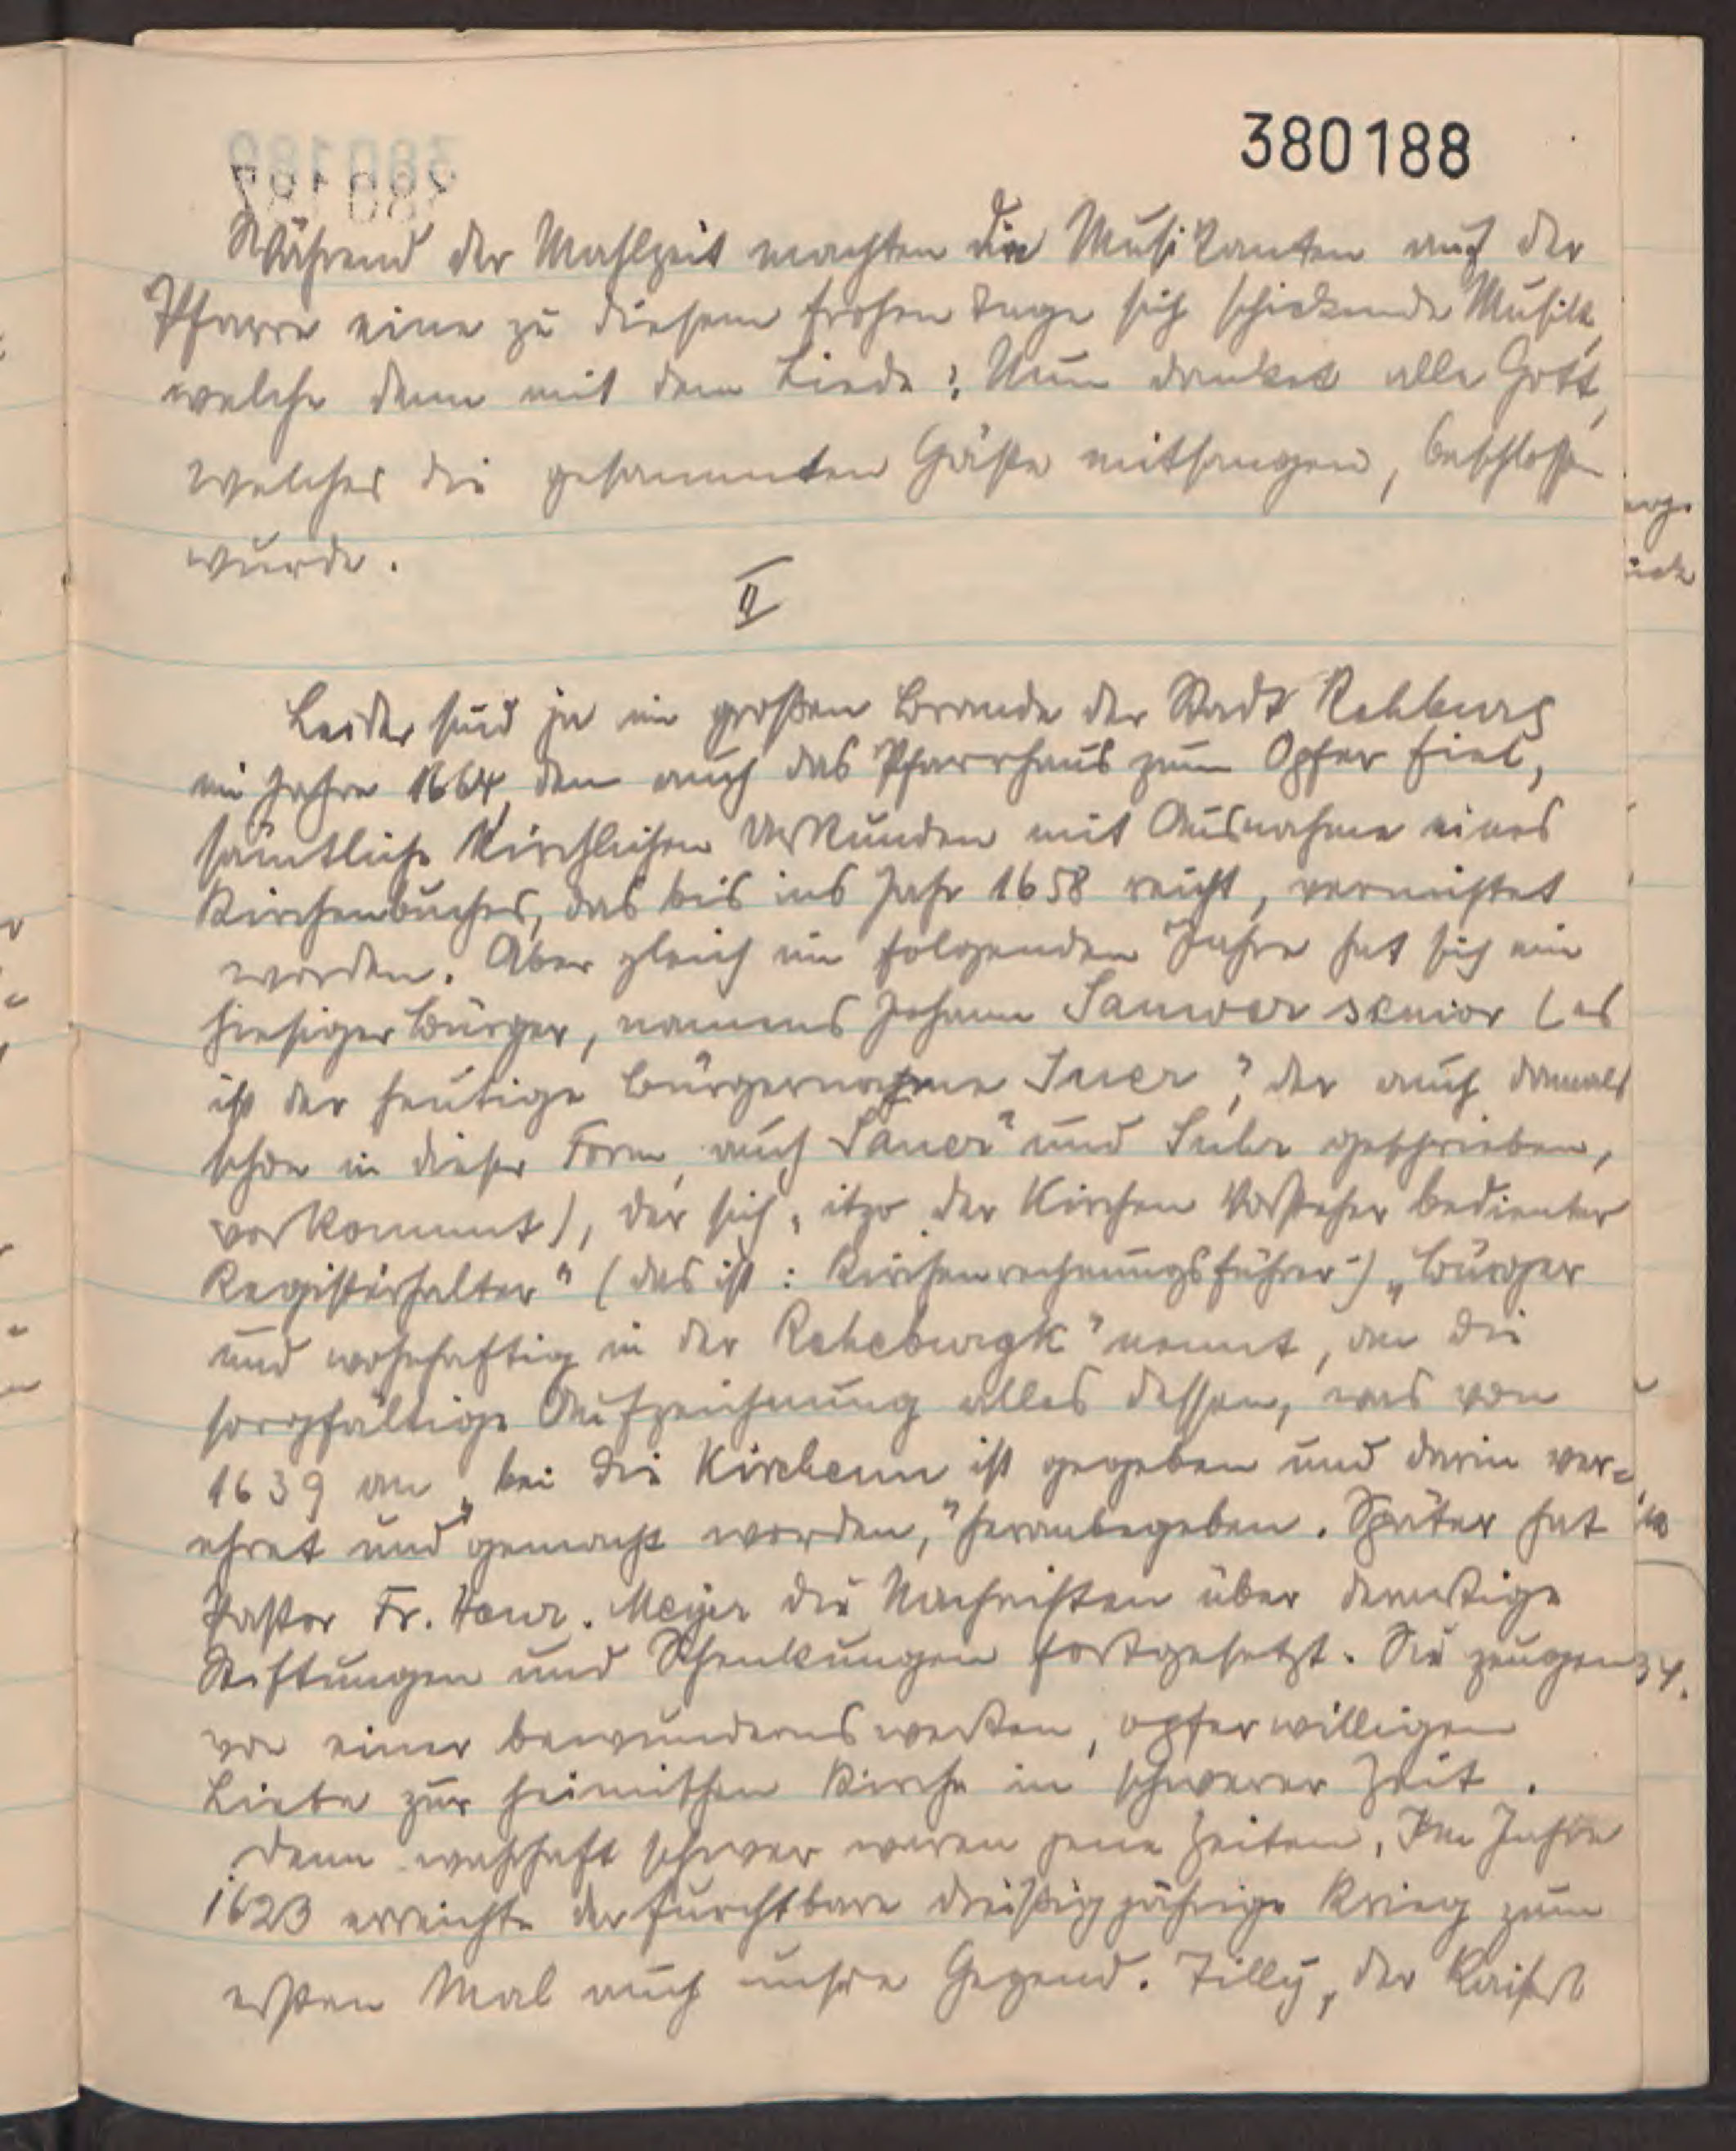 380188
Während der Mahlzeit machten die Musikanten auf der
Pfarre eine zu diesem frohen Tage sich schickende Musik,
welche dann mit dem Liede: Nun danket alle Gott,
welches die gesammten Gäste mitsangen, beschlossen
wurde.
II
Leider sind ja im großen Brande der Stadt Rehburg
im Jahre 1664, dem auch das Pfarrhaus zum Opfer fiel,
sämtliche kirchlichen Urkunden mit Ausnahme eines
Kirchenbuches, das bis ins Jahr 1658 reicht, vernichtet
worden. Aber gleich im folgenden Jahre hat sich ein
hiesiger Bürger, namens Johann Sauwer senior (es
ist der heutige Bürgername Suer, der auch damals
schon in dieser Form, auch Sauer" und Suhr geschrieben,
vorkommt), der sich „itzo der Kirchen Vorsteher bedienter
Registerhalter" (das ist: Kirchenrechnungsführer) „Bürger
und wohnhaftig in der Reheburgk" nennt, an die
sorgfältige Aufzeichnung alles dessen, was von
1639 an „bei die Kirchenn ist gegeben und darin ver=
ehret und gemacht worden," heranbegeben. Später hat
Pastor Fr. Henr. Meyer die Nachrichten über derartige
Stiftungen und Schenkungen fortgesetzt. Sie zeugen
von einer bewundernswerten, opferwilligen
Liebe zur heimischen Kirche in schwerer Zeit.
Denn wahrhaft schwer waren jene Zeiten. Im Jahre
1623 erreichte der furchtbare dreißigjährige Krieg zum
ersten Mal auch unsre Gegend. Tilly, der Kaiserl